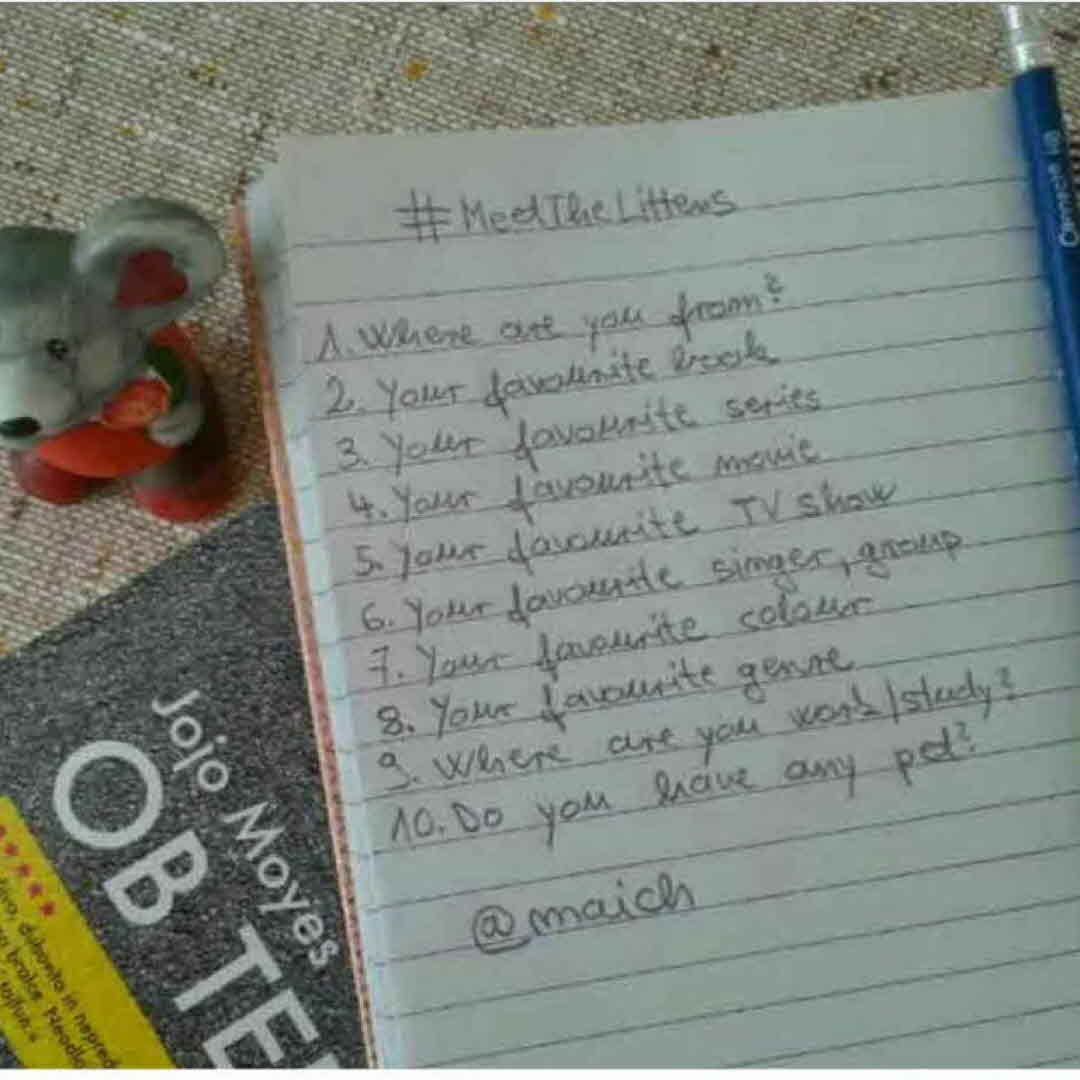 #MeetTheLittens
1. Where are you from?
2. Your favourite book
3. Your favourite series
4. Your favourite movie
5. Your favourite TV show
6. Your favourite singer, group
7. Your favourite colour
8. Your favourite genre
9. Where are you work/study?
10. Do you have any pet?
@maich
Jojo Moyes
OB TE